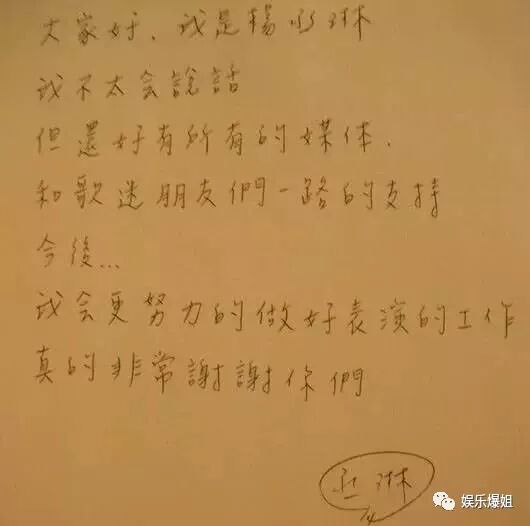 大家好，我是楊丞琳
我不太会說話
但還好有所有的媒体，
和歌迷朋友們一路的支持
今後...
我会更努力的做好表演的工作
真的非常謝謝你們
丞琳
娱乐爆姐